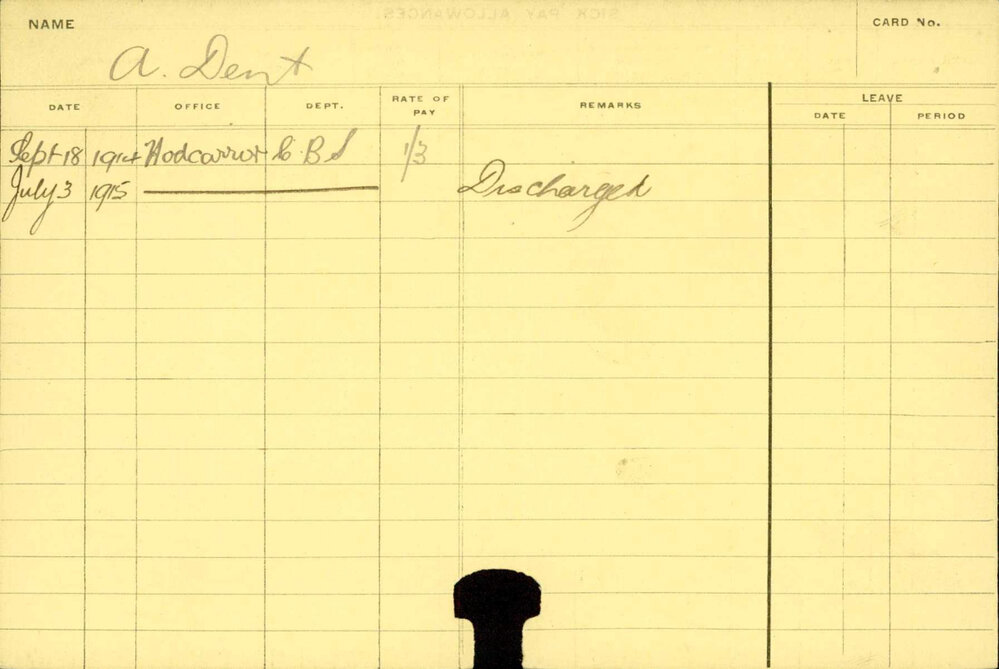 SICK PAY ALLOWANCES.
NAME
CARD No.
A. Dent
DATE OFFICE DEPT. RATE OF PAY REMARKS LEAVE
DATE PERIOD
Sept 18 1914 Hodcarrier C. B S 1/3
July 3 1915 Discharged